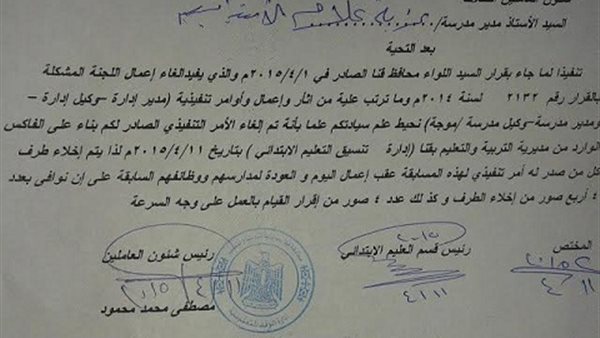 السيد الأستاذ مدير مدرسة/
بعد التحية
تنفيذا لما جاء بقرار السيد اللواء محافظ قنا الصادر في ٢٠١٥/٤/١م والذي يفيد الغاء إعمال اللجنة المشكلة
بالقرار رقم ٢١٣٢ لسنة ٢٠١٤م وما ترتب علية من اثار وإعمال وأوامر تنفيذية (مدير إدارة –وكيل إدارة –
ومدير مدرسة–وكيل مدرسة /موجة) نحيط علم سيادتكم علما بأنة تم إلغاء الأمر التنفيذي الصادر لكم بناء على الفاكس
الوارد من مديرية التربية والتعليم بقنا (إدارة تنسيق التعليم الابتدائى ) بتاريخ ٢٠١٥/٤/١١م لذا يتم إخلاء طرف
كل من صدر له أمر تنفيذي لهذه المسابقة عقب إعمال اليوم و العودة لمدارسهم ووظائفهم السابقة على إن نوافى بعدد
٤ أربع صور من إخلاء الطرف و كذ لك عدد ٤ صور من إقرار القيام بالعمل على وجه السرعة
المختص رئيس قسم العليم الإبتدائي رئيس شئون العاملين
٤/١١
مصطفى محمد محمود